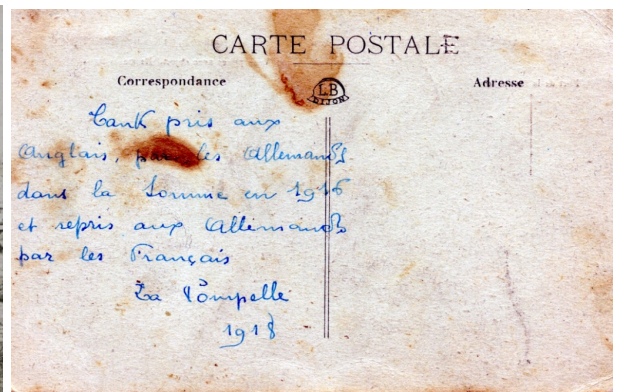 CARTE POSTALE
Correspondance
LB
DIJON
Adresse
Tank pris aux
Anglais, par les Allemands
dans la Somme en 1916
et repris aux Allemands
par les Français
La Pompelle
1918